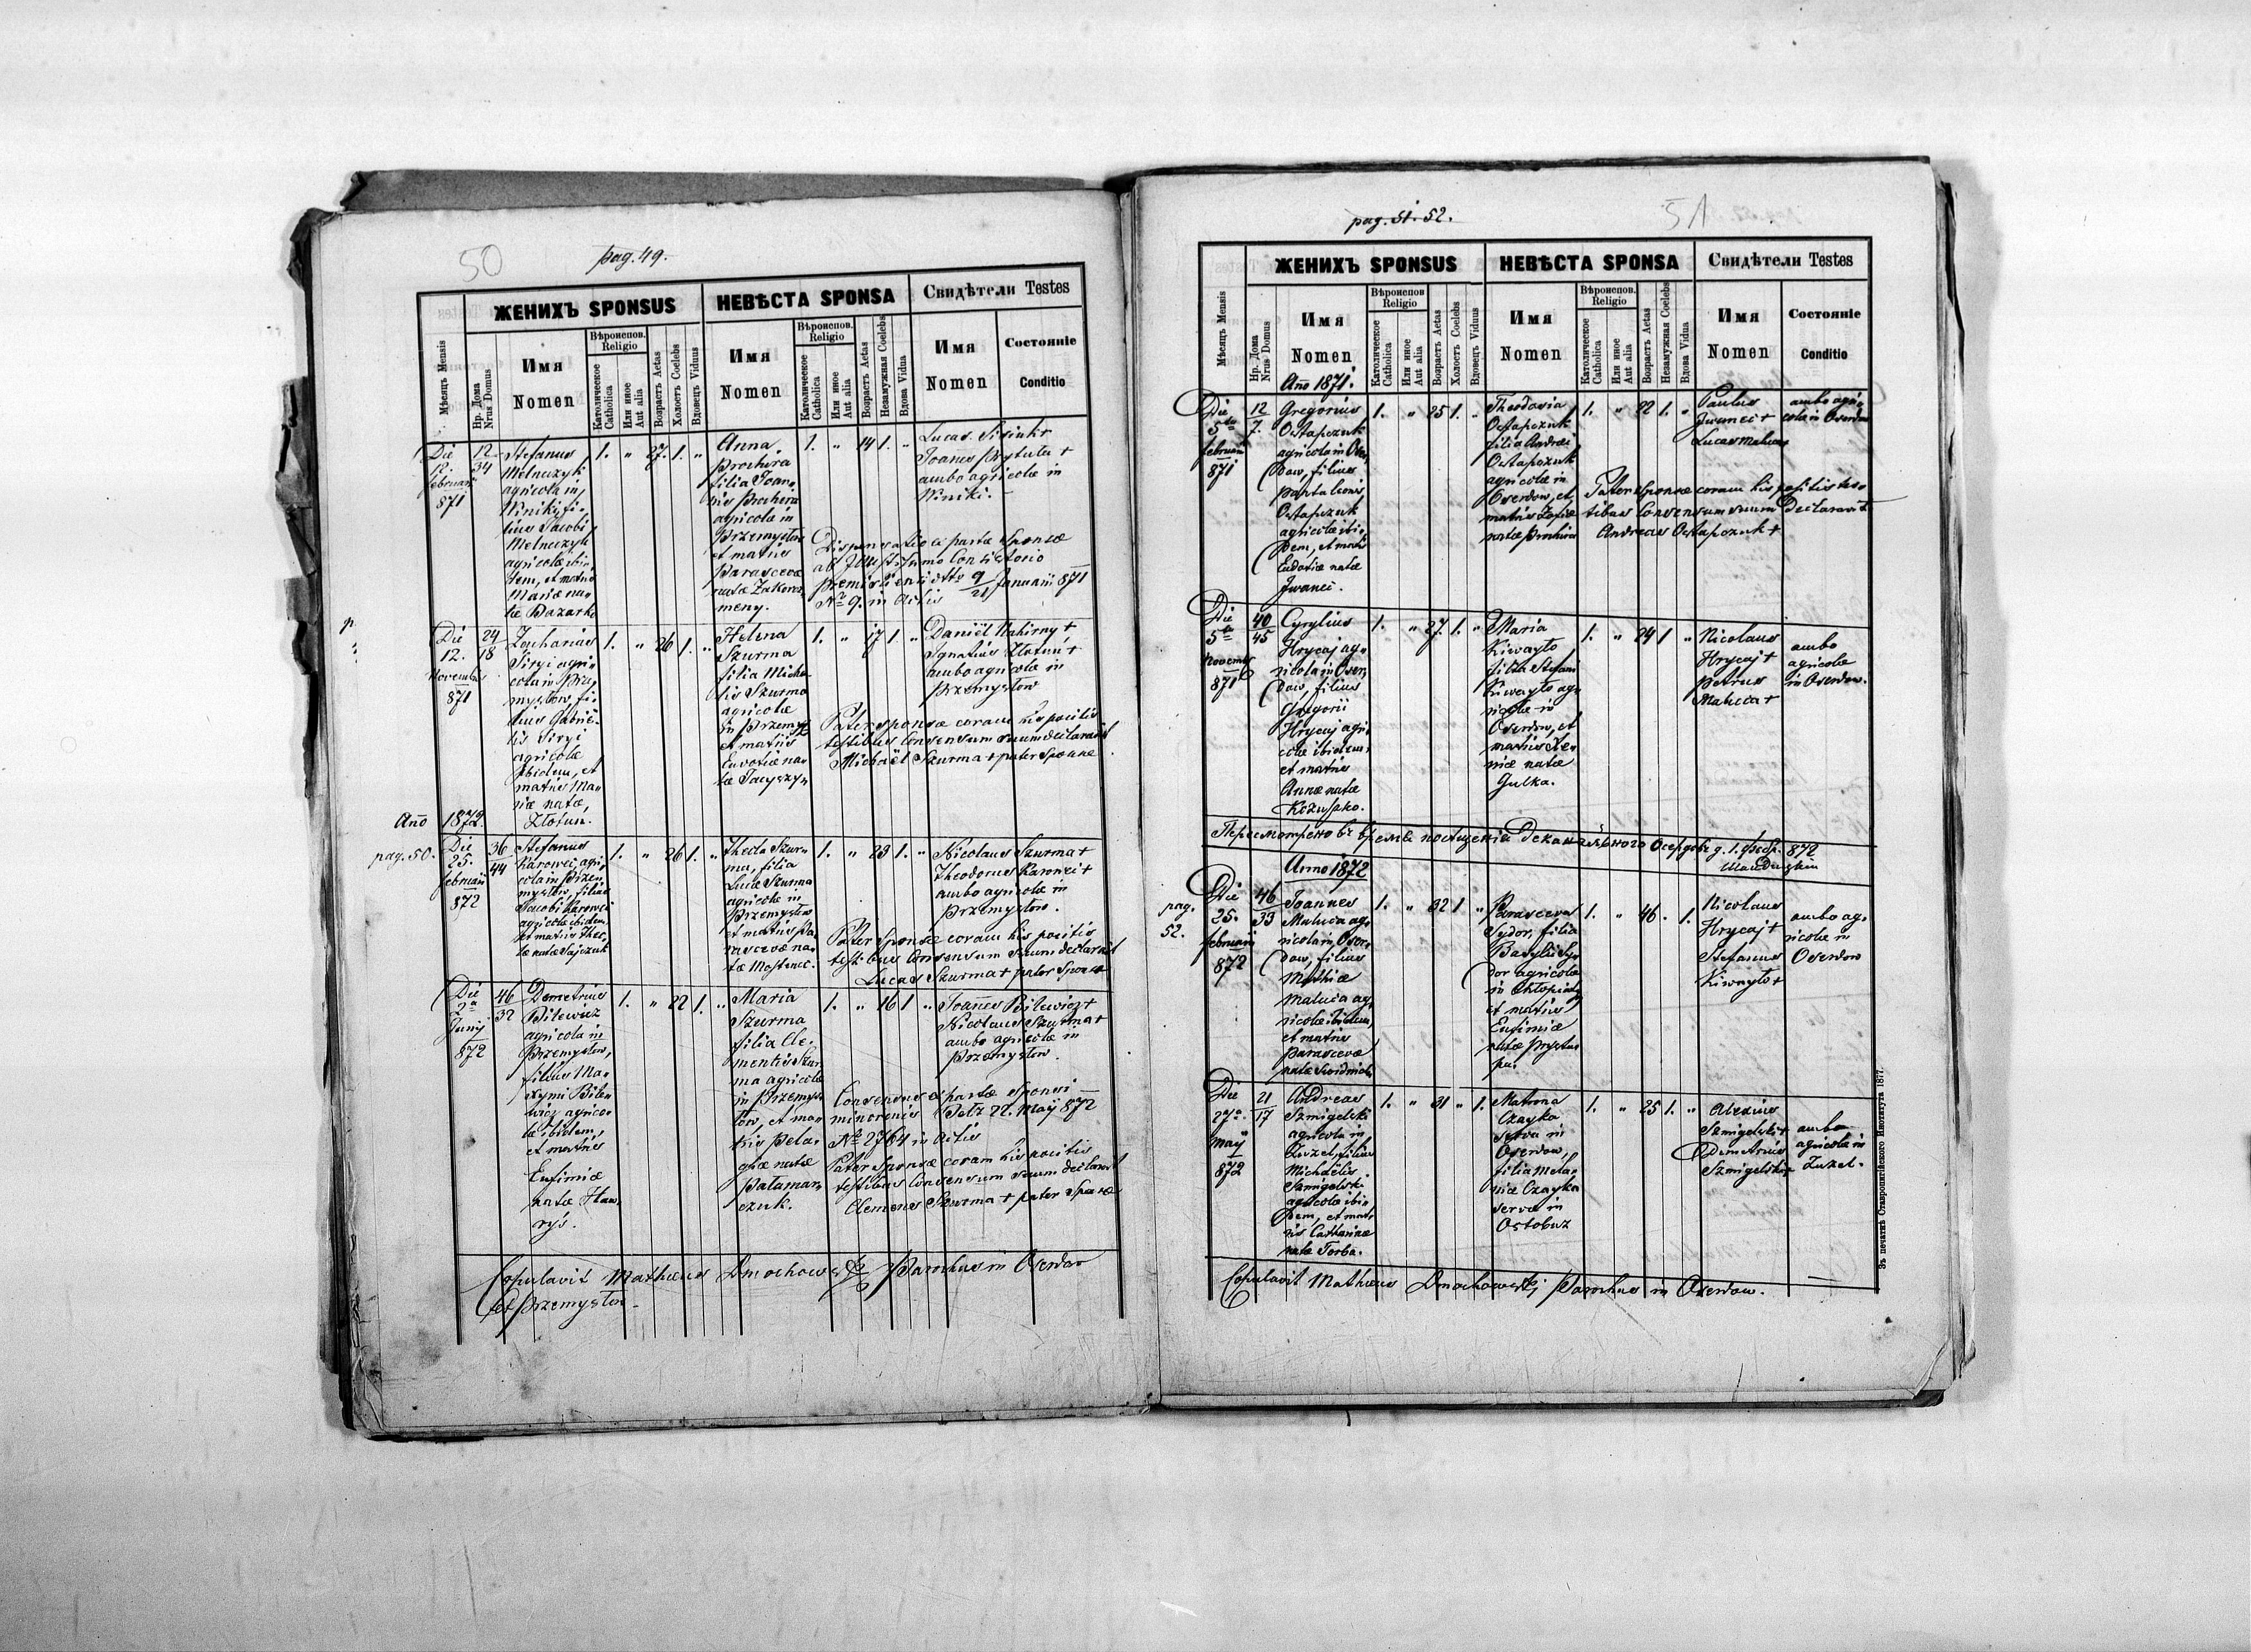 50 pag. 49.
ЖЕНИХЪ SPONSUS НЕВѢСТА SPONSA Свидѣтели Testes
Мѣсяцъ Mensis
Нр. Дома Nrus Domus
Имя Nomen
Вѣроиспов. Religio
Католическое Catholica
Или иное Aut alia
Возрастъ Aetas
Холостъ Coelebs
Вдовецъ Viduus
Имя Nomen
Вѣроиспов. Religio
Католическое Catholica
Или иное Aut alia
Возрастъ Aetas
Незамужная Coelebs
Вдова Vidua
Имя Nomen
Состояніе Conditio
Die
12.
februarii
871
12
34
Stefanus
Melniczyk
agricola in
Winiki, fi-
lius Jacobi
Melniczyk
agricolæ ibi-
dem, et matris
Mariæ na-
tæ Bazarko
1. " 27. 1. "
Anna
Prochira
filia Joan-
nis Prochira
agricolæ in
Przemysłow
et matris
Parascevæ
natæ
meny.
1. " 14 1. "
Lucas
Joannes Prytuła +
ambo agricolæ in
Winiki.
Dispensatio ex parte Sponsæ
ab Illustrissimo Consistorio
Premisliensi dtto 9/21 Januarii 871
Nº 9. in Actis
Die
12.
Novembris
871
24
18
Zacharias
Siryi agri-
cola in Prze-
mysłow, fi-
lius Gabrie-
lis Siryi
agricolæ
ibidem, et
matris Ma-
riæ natæ
Złotun.
1. " 26 1. "
Helena
Szurma
filia Micha-
lis Szurma
agricolæ
in Przemys
et matris
Eudoxiæ na-
tæ
1. " 17 1. "
Daniël Nahirny +
Ignatius Złotun +
ambo agricolæ in
Przemysłow
Pater sponsæ coram his positis
testibus Consensum suum declaravit
Michaël Szurma + pater Sponsæ
Año 1872.
pag. 50.
Die
25.
februarii
872
36
44
Stefanus
Karowec agri-
cola in Przem
mysłow, filius
Jacobi Karowec
agricolæ ibidem,
et matris Thec-
læ natæ Sajczuk
1. " 26 1. "
Thecla Szur-
ma, filia
Lucæ Szurma
agricolæ in
Przemysłow
et matris Pa-
rascevæ na-
tæ Mostenec.
1. " 23 1. "
Nicolaus Szurma +
Theodorus Karowec +
ambo agricolæ in
Przemysłow.
Pater Sponsæ coram his positis
testibus Consensum suum declaravit
Lucas Szurma + pater Sponsæ
Die
2ª
Junij
872
46
32
Demetrius
Bilewicz
agricola in
Przemysłow,
filius Ma-
xymi Bile-
wicz agrico-
læ ibidem,
et matris
Eufimiæ
natæ Haw-
rys.
1. " 22 1. "
Maria
Szurma
filia Cle-
mentis Szur-
ma agricolæ
in Przemys-
łow, et ma-
tris Pela-
giæ natæ
Pałamar-
czuk.
1. " 16 1 "
Joannes Bilewicz +
Nicolaus Szurma +
ambo agricolæ in
Przemysłow.
Consensus ex parte Sponsi
minorenis Bełz 22. Maij 872
Nº 2764 in Actis
Pater Sponsæ coram his positis
testibus Consensum suum declaravit
Clemens Szurma + pater Sponsæ
Copulavit Mathæus Dmochowski Parochus in Oserdow
et Przemysłow
pag. 51. 52. 51
ЖЕНИХЪ SPONSUS НЕВѢСТА SPONSA Свидѣтели Testes
Мѣсяцъ Mensis
Нр. Дома Nrus Domus
Имя Nomen
Вѣроиспов. Religio
Католическое Catholica
Или иное Aut alia
Возрастъ Aetas
Холостъ Coelebs
Вдовецъ Viduus
Имя Nomen
Вѣроиспов. Religio
Католическое Catholica
Или иное Aut alia
Возрастъ Aetas
Незамужная Coelebs
Вдова Vidua
Имя Nomen
Состояніе Conditio
Año 1871.
Die
5ta
februarii
871
12
7.
Gregorius
Ostapczuk
agricola in Oser
dow, filius
Pantaleonis
Ostapczuk
agricolæ ibi-
dem, et matris
Eudoxiæ natæ
Iwanec.
1. " 25 1. "
Theodosia
Ostapczuk
filia Andreæ
Ostapczuk
agricolæ in
Oserdow, et
matris Zofiæ
natæ Prochira
1. " 22 1. "
Paulus
Iwanec +
Lucas Maluca
ambo agri-
colæ in Oserdow
Pater Sponsæ coram his positis tes-
tibus Consensum suum Declaravit
Andreas Ostapczuk +
Die
5ta
Novembr
871
40
45
Cyrylius
Hrycaj ag-
ricola in Oser-
dow, filius
Gregorii
Hrycaj agri-
colæ ibidem,
et matris
Annæ natæ
Kożuszko.
1. " 27. 1. "
Maria
Kiwayło
filia Stefani
Kiwayło ag-
ricolæ in
Oserdow, et
matris Xe-
niæ natæ
Gulka.
1. " 24 1 "
Nicolaus
Hrycaj +
Petrus
Maluca +
ambo
agricolæ
in Oserdow.
Пересмотрено въ время посѣщенія деканального Осердовъ д. 1. февр. 872
Anno 1872
pag.
52.
Die
25.
februarii
872
46
33
Joannes
Maluca ag-
ricola in Oser-
dow, filius
Mathiæ
Maluca ag-
ricolæ ibidem
et matris
Parascevæ
natæ
1. " 32 1 "
Parasceva
Sydor, filia
Basylii Sy-
dor agricolæ
in Chłopiatyn
et matris
Eufimiæ
natæ Prystu-
pa.
1. " 46. . 1.
Nicolaus
Hrycaj +
Stefanus
Kiwayło +
ambo ag-
ricolæ in
Oserdow
Die
27ª.
Maij
872
21
17
Andreas
Szmigelski
agricola in
Żużel, filius
Michaëlis
Szmigelski
agricolæ ibi-
dem, et mat-
ris Catharinæ
natæ Torba.
1. " 31 " 1.
Matrona
Czayka
serva in
Oserdow,
filia Mela-
niæ Czayka
servæ in
Ostobuz
1. " 25 1. "
Alexius
Szmigelski +
Demetrius
Szmigelski +
ambo
agricolæ in
Żużel.
Copulavit Mathæus Dmochowski Parochus in Oserdow.
Зъ печатнѣ Ставропигійского Института 1877.